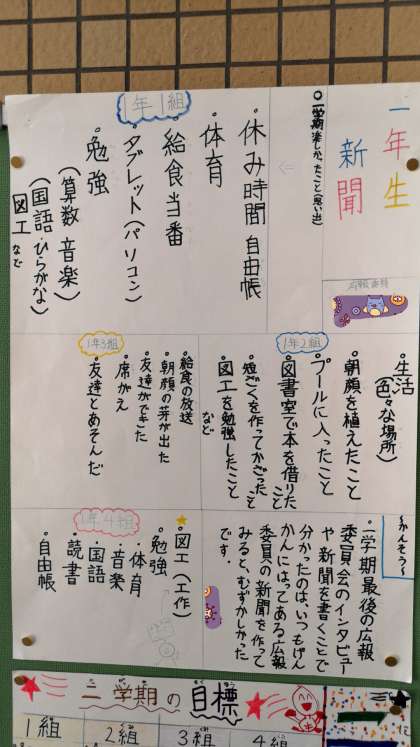 一年生
新聞
広報委員
○一学期楽しかったこと(思い出)
1年1組
・休み時間 自由帳
・体育
・給食当番
・タブレット(パソコン)
・勉強
(算数 音楽)
(国語・ひらがな)
図工 など
・生活
(色々な場所)
・朝顔を植えたこと
1年2組
・プールに入ったこと
・図書室で本を借りたこと
・短ざくを作ってかざったこと
・図工を勉強したこと
など
1年3組
・給食の放送
・朝顔の芽が出た
・友達ができた
・席がえ
・友達とあそんだ
〜かんそう〜
・一学期最後の広報
委員会のインタビュー
や新聞を書くことで
分かったのは、いつもげん
かんにはってある広報
委員への新聞を作って
みると、むずかしかった
です。
1年4組
・図工(工作)
・勉強
・体育
・音楽
・国語
・読書
・自由帳
二学期の目標
1組
2組
3組
4組